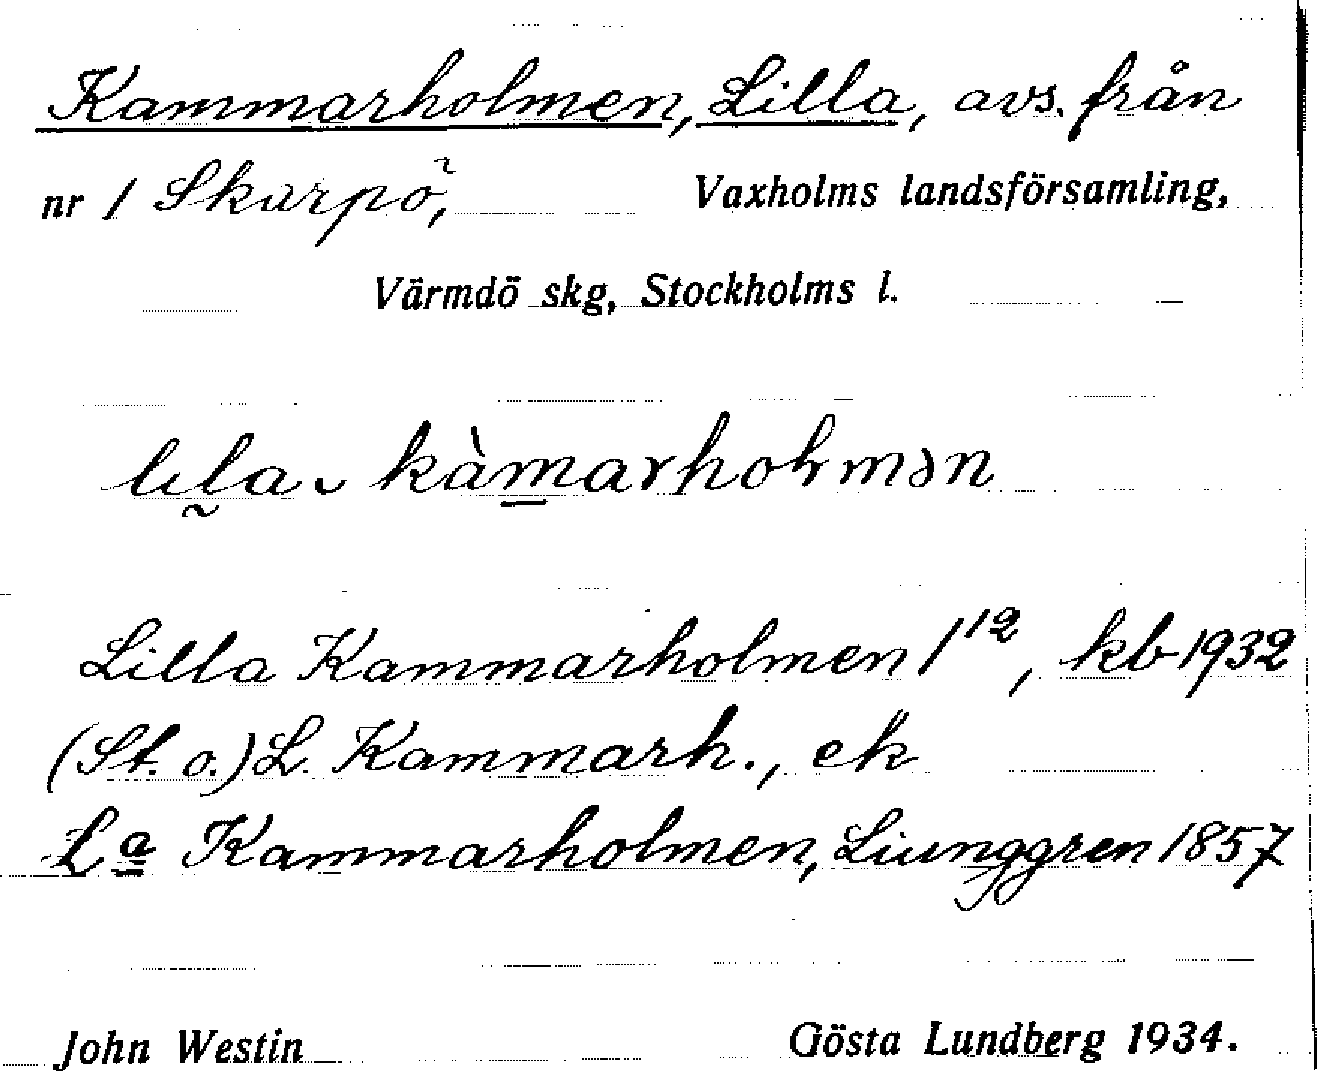 Kammarholmen, Lilla, avs. från
nr 1 Skarpö, Vaxholms landsförsamling,
Värmdö skg, Stockholms l.
Lilla Kammarholmen 1¹², kb 1932
(St. o.) L. Kammarh., ek
Lª Kammarholmen, Liunggren 1857
John Westin Gösta Lundberg 1934.